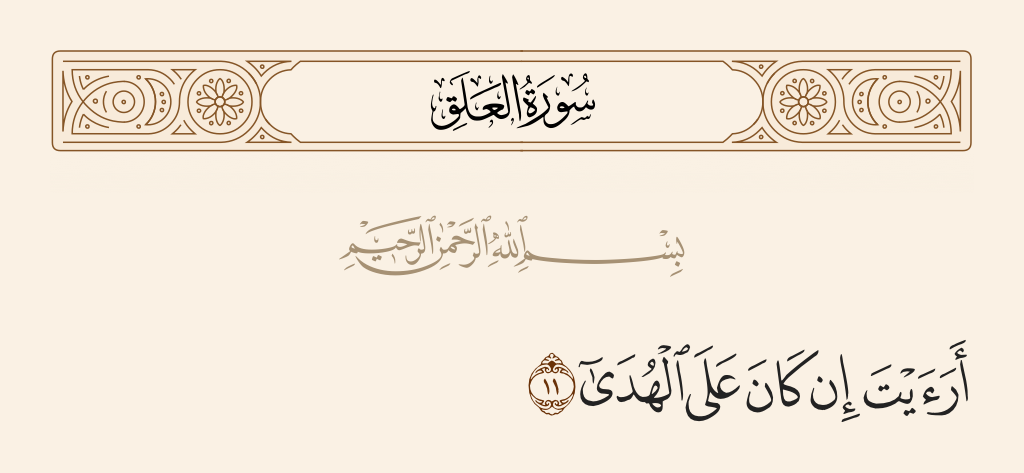 سُورَةُ العَلَقِ
بِسْمِ ٱللَّهِ ٱلرَّحْمَٰنِ ٱلرَّحِيمِ
أَرَءَيْتَ إِن كَانَ عَلَى ٱلْهُدَىٰٓ ١١